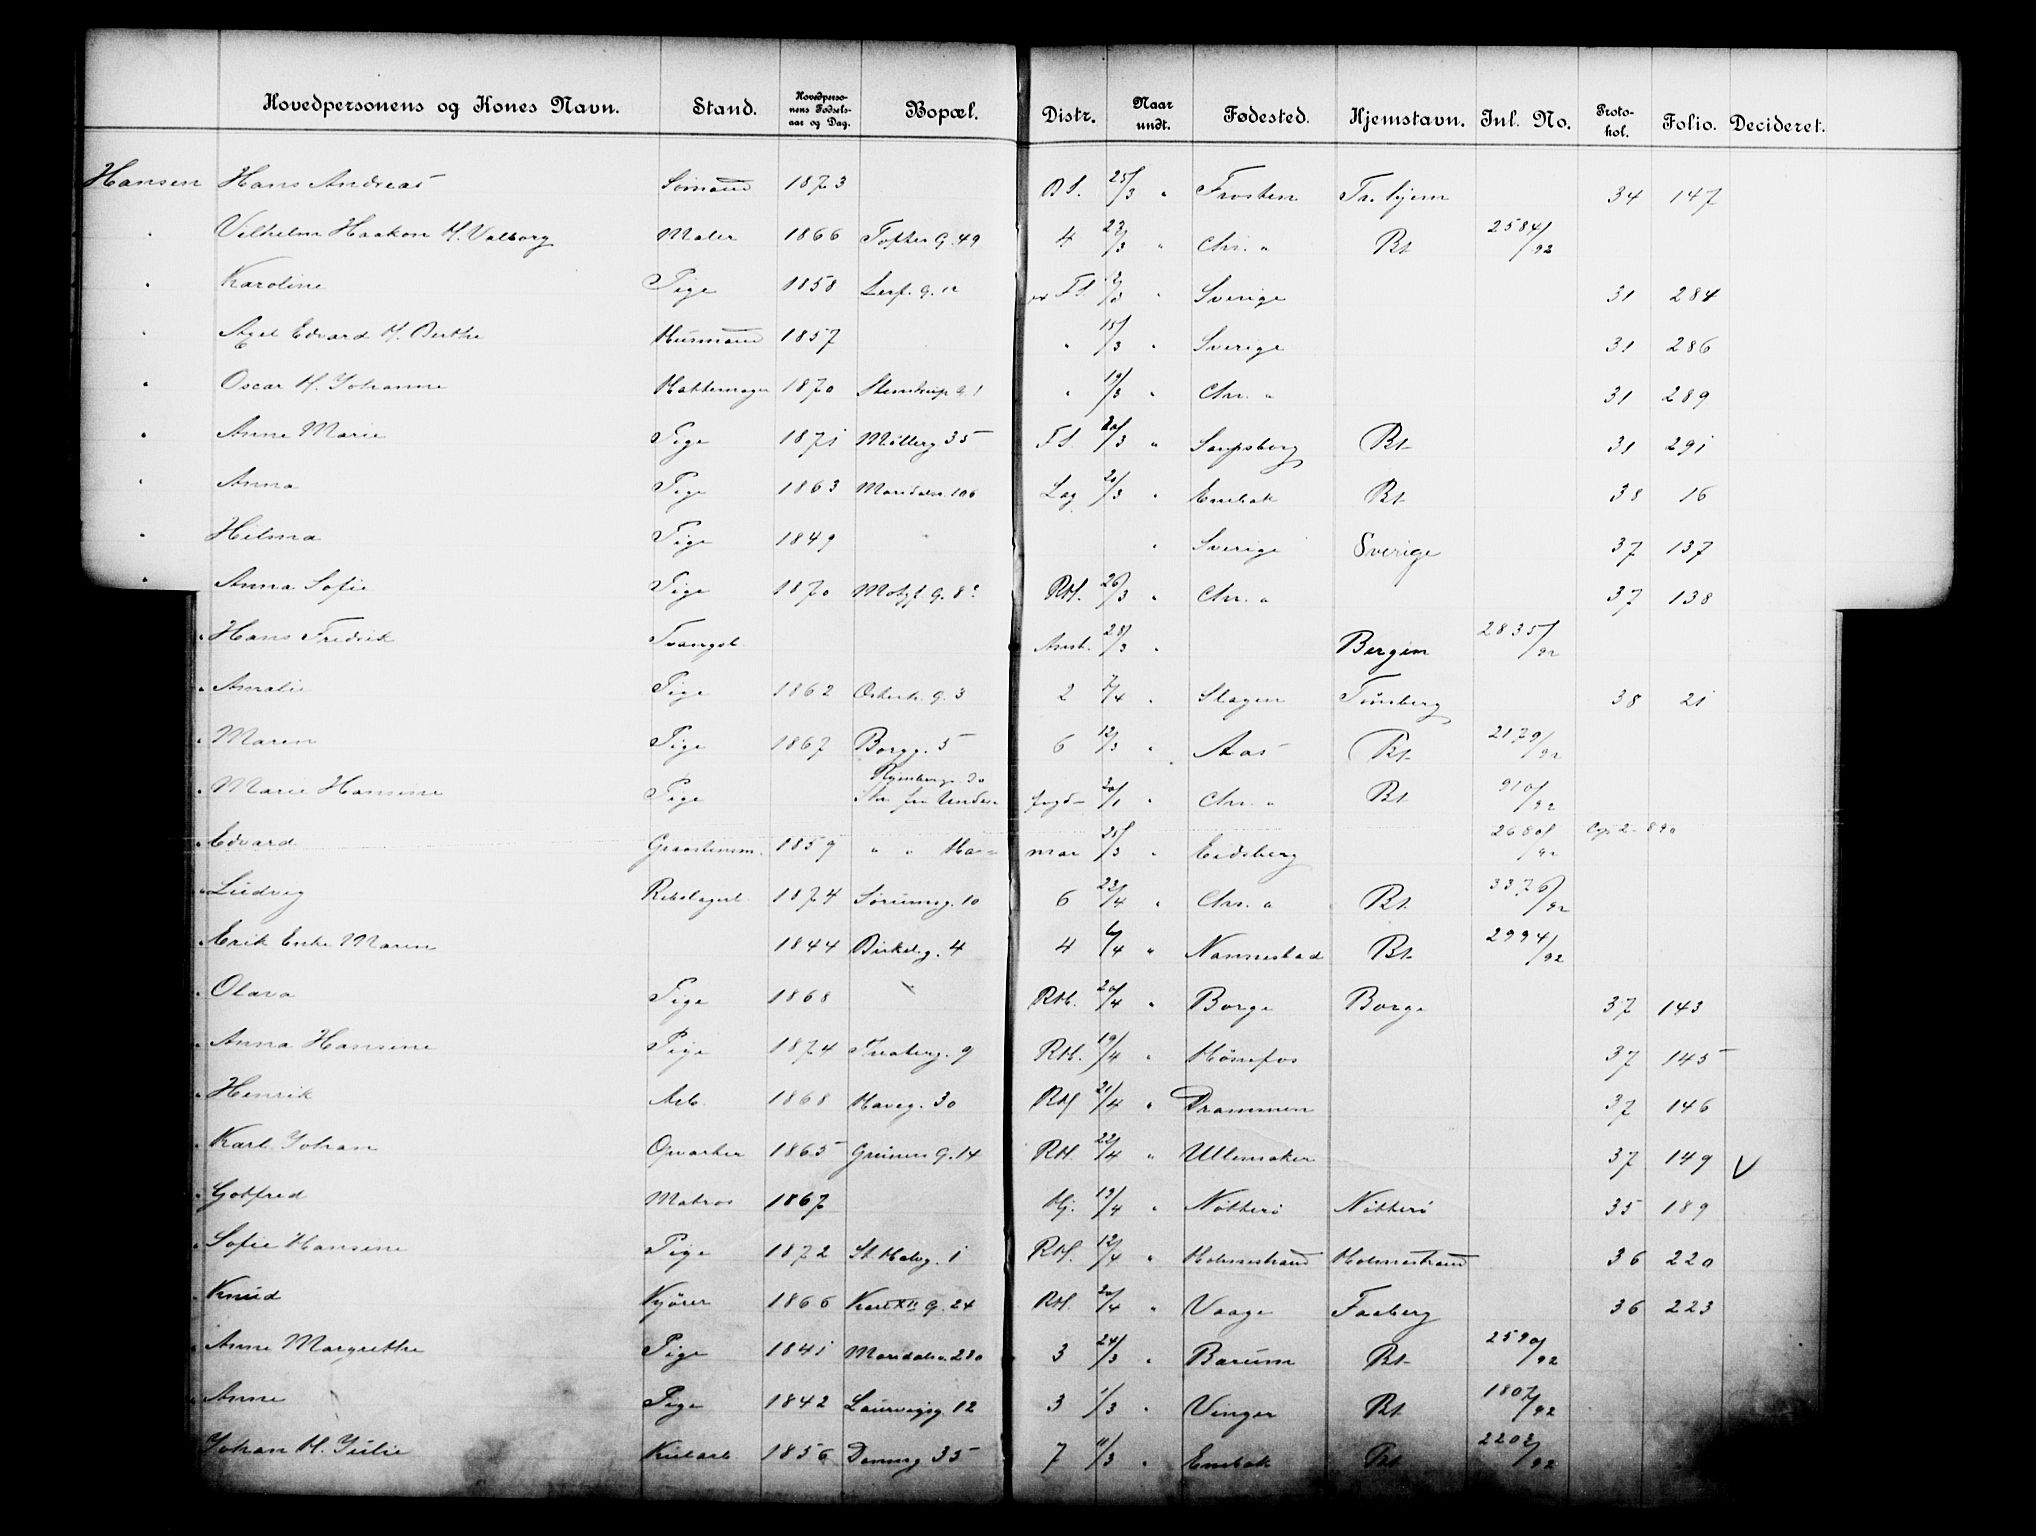 Hovedpersonens og Kones Navn. Stand. Hovedpersonens Fødselsaar og Dag. Bopæl. Distr. Naar undt. Fødested. Hjemstavn. Inl. No. Protokol. Folio. Decideret.
Hansen Hans Andreas Sømand 1873 25/3 " Frosten Tr.hjem 34 147
" Vilhelm Haakon H. Valborg Maler 1866 Tofteg. 49 4 23/3 " Chr.a Bt 2584/92
" Karoline Pige 1858 12 F.S. " Sverige 31 284
" Axel Edvard H. Berthe Husmand 1857 " 15/3 " Sverige 31 286
" Oscar H. Johanne Hattemager 1870 Stenstrupg. 1 " 19/3 " Chr.a 31 289
" Anne Marie Pige 1871 Møllerg 35 F.S. 20/3 " Sarpsborg Bt 31 291
" Anna Pige 1863 Maridalsv. 106 Lag 20/3 " Enebak Bt 38 16
" Hilma Pige 1849 " Sverige Sverige 37 137
" Anna Sofie Pige 1870 RH. 26/3 " Chr.a 37 138
" Hans Fredrik Tvangsb. 28/3 " Bergen 2835/92
" Amalie Pige 1862 g. 3 2 2/4 " Slagen Tønsberg 38 21
" Maren Pige 1867 Borgg. 5 6 12/3 " Aas Bt 2179/92
" Marie Hansine Pige 30/1 " Chr.a Bt 910/92
" Edvard Graastensm. 1859 " " Ha- mar 25/3 " Eidsberg 2680/92
" Ludvig Rebslagerl. 1874 Sørumsg. 10 6 23/4 " Chr.a Bt 3376/92
" Erik Enke Maren 1844 Birkelg. 4 4 6/4 " Nannestad Bt 2994/92
" Olava Pige 1868 RH. 20/4 " Borge Borge 37 143
" Anna Hansine Pige 1874 9 RH. 19/4 " Hønefos 37 145
" Henrik Arb. 1868 Haveg. 30 RH 21/4 " Drammen 37 146
" Karl Johan 1865 Grünersg. 14 RH 22/4 " Ullensaker 37 149 V
" Gotfred Matros 1867 Hj. 13/4 " Nøtterø Nøtterø 35 189
" Sofie Hansine Pige 1872 St. Halvg. 1 RH. 12/4 " Holmestrand Holmestrand 36 220
" Knud Kjører 1866 Karl XII g. 24 RH. 20/4 " Vaage Faaberg 36 223
" Anne Margrethe Pige 1841 Maridalsv. 230 3 24/3 " Bærum Bt 2590/92
" Anne Pige 1842 Laurvigsg. 12 3 1/3 " Vinger Bt 1807/92
Johan H. Julie 1856 35 7 11/3 " Enebak Bt 2202/92